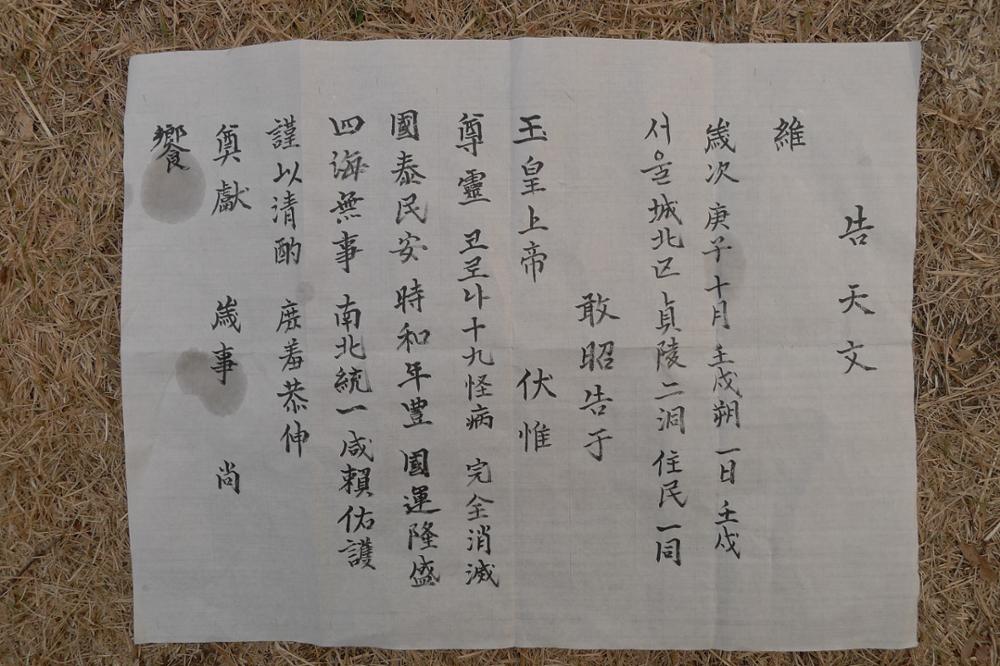 告天文
維
歲次 庚子 十月 壬戌朔 一日 壬戌
서울 城北区 貞陵二洞 住民一同
敢昭告于
玉皇上帝 伏惟
尊靈 코로나十九怪病 完全消滅
國泰民安 時和年豊 國運隆盛
四海無事 南北統一 咸賴佑護
謹以淸酌 庶羞恭伸
奠獻 歲事 尚
饗